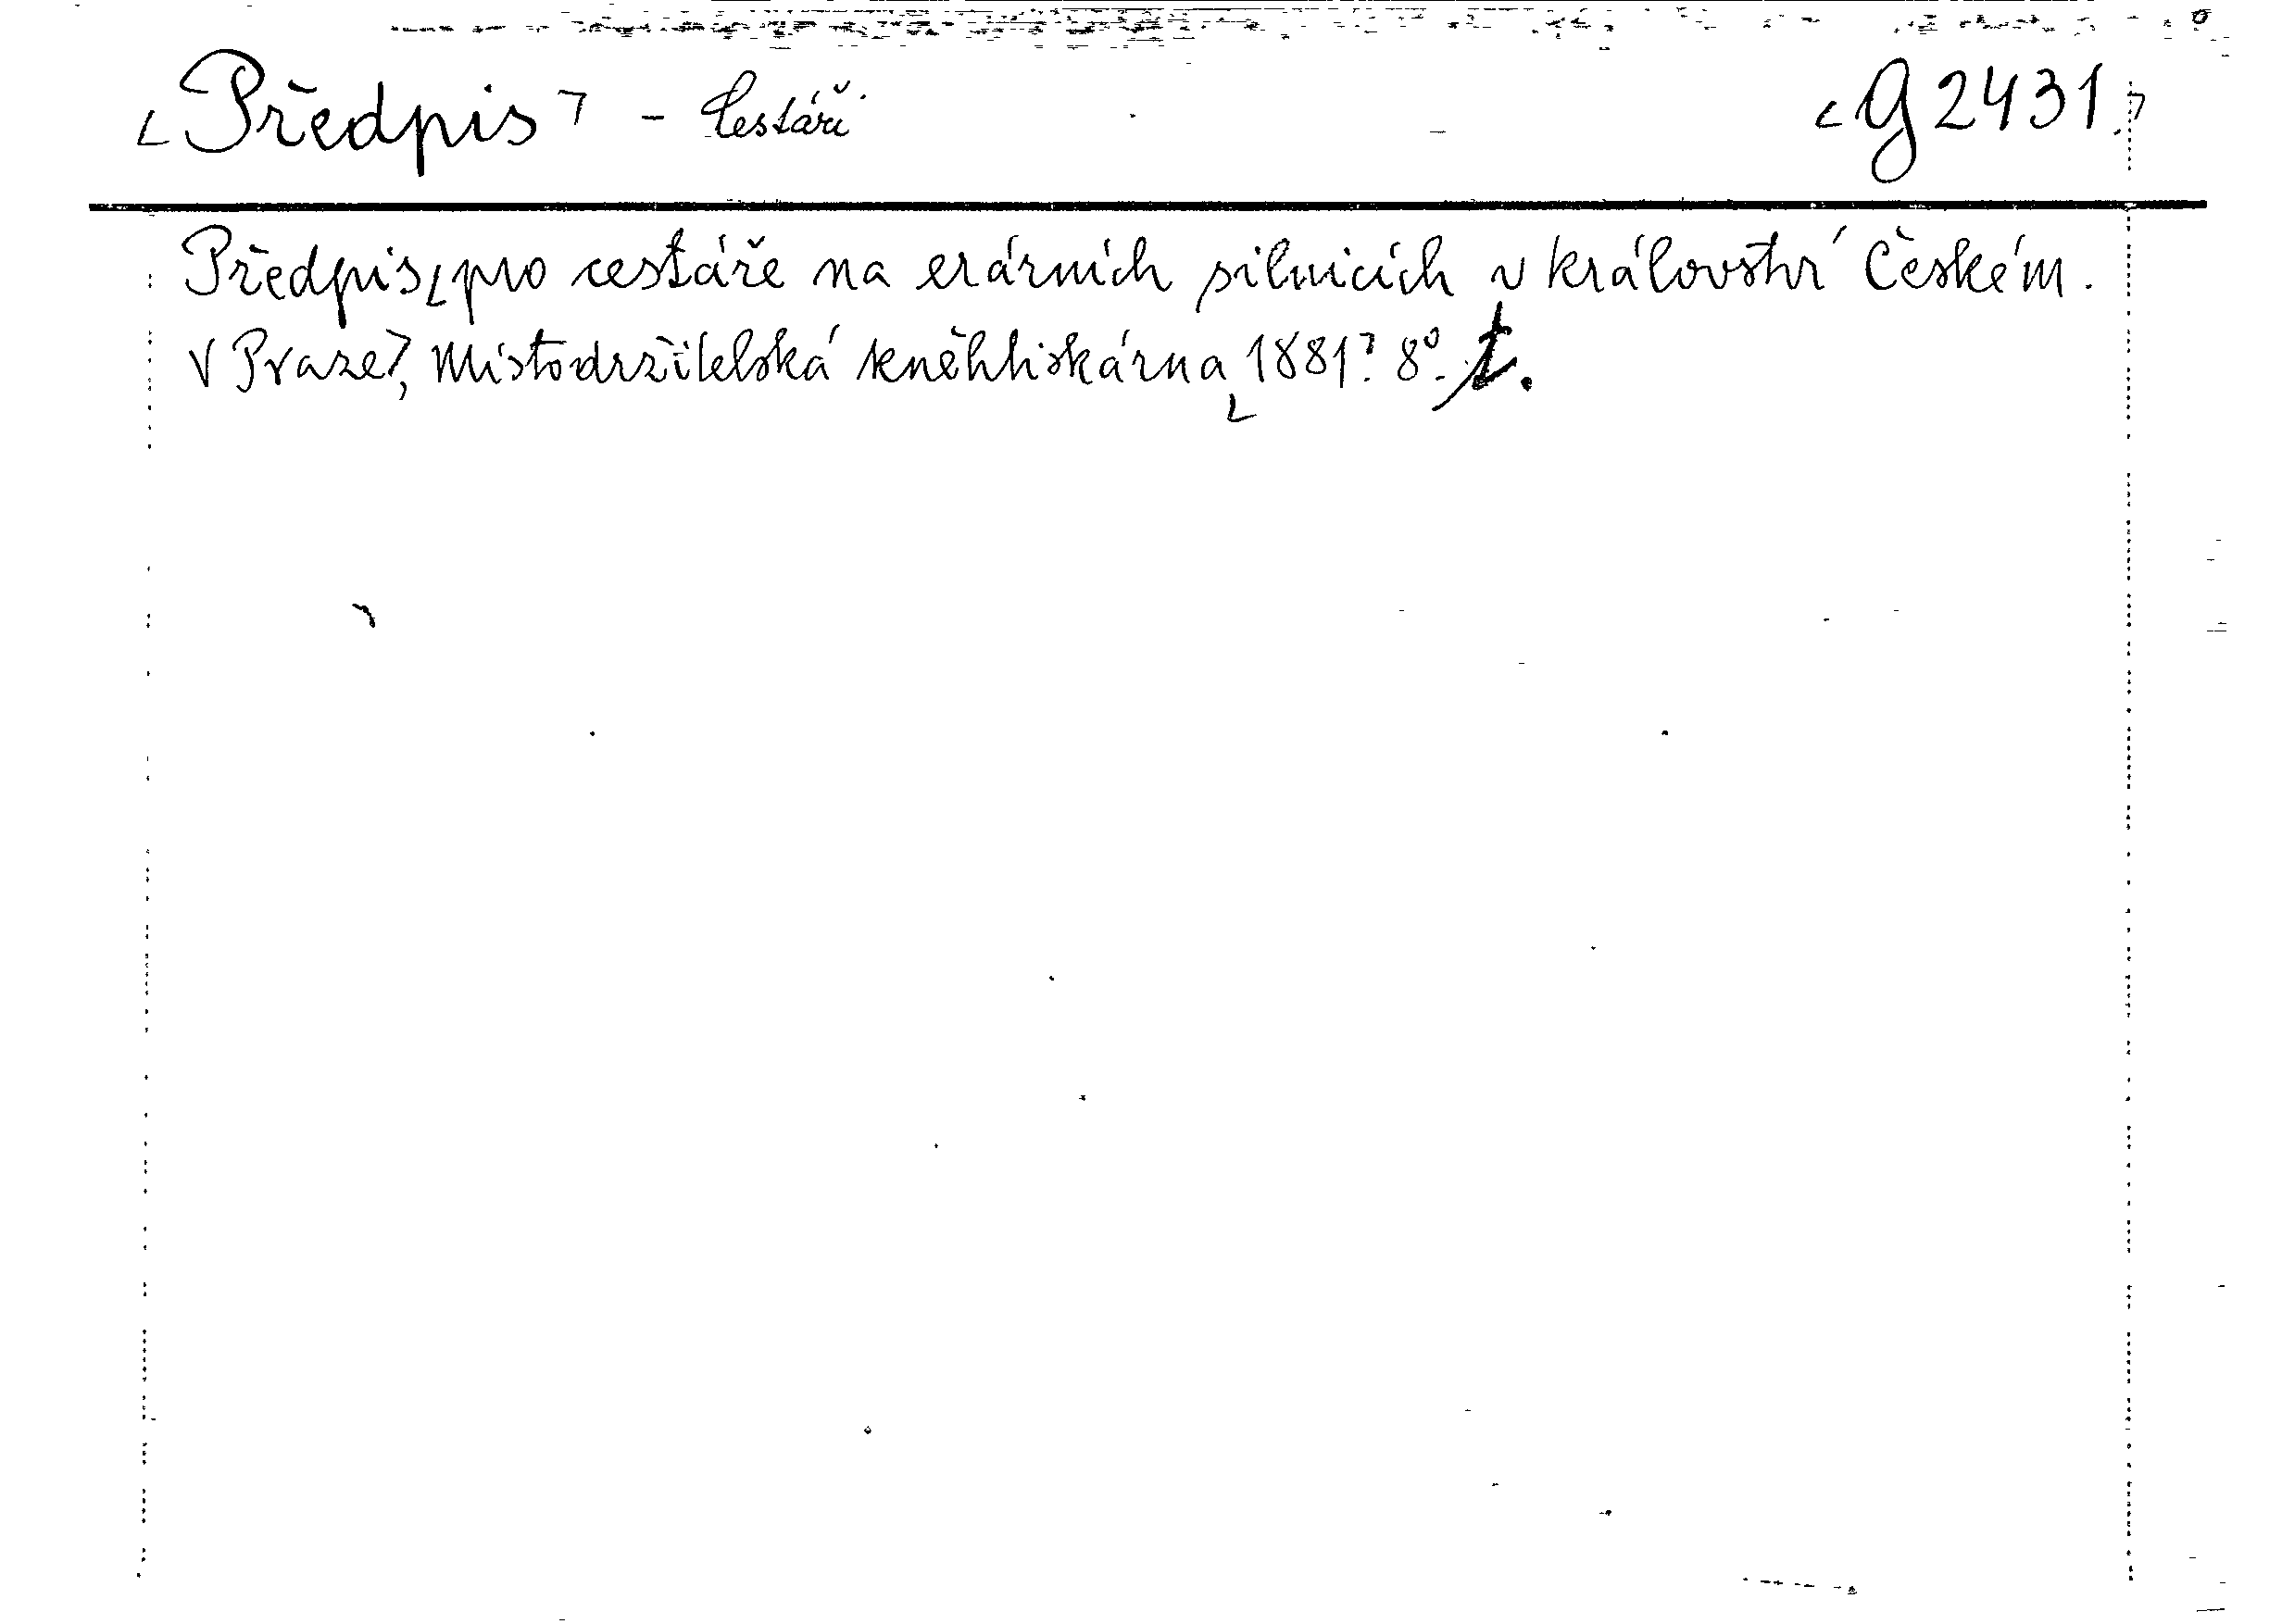 Předpis - Cestáři G 2431
Předpis pro cestáře na erárních silnicích v království Českém.
V Praze, Místodržitelská kněhtiskárna 1881. 8°.